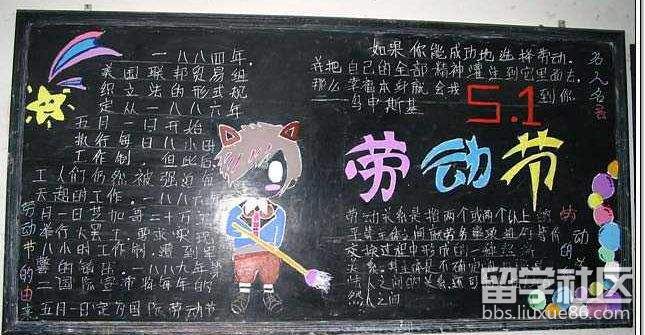 一八八四年，
美国联邦贸易组
织立法的形式规
定从一八八六年
五月一日开始
执行每日八小时
工作制，但此后
工人们仍然被强迫每
天超时工作。一八八六年
五月一日芝加哥二十万工
举行大罢工，要求实现
八小时工作制，遭到军
警的镇压。一八八九年第
二国际宣布将每年的
五月一日定为国际劳动节
劳动节的由来
如果你能成功地选择劳动，
并把自己的全部精神灌注到它里面去，
那么幸福本身就会找到你
——乌申斯基
名人名言
5.1
劳动节
劳动关系是指两个或两个以上
交换过程中形成的一种经济
关系，其主体是不确定的
然人之间
留学社区
bbs.liuxue86.com